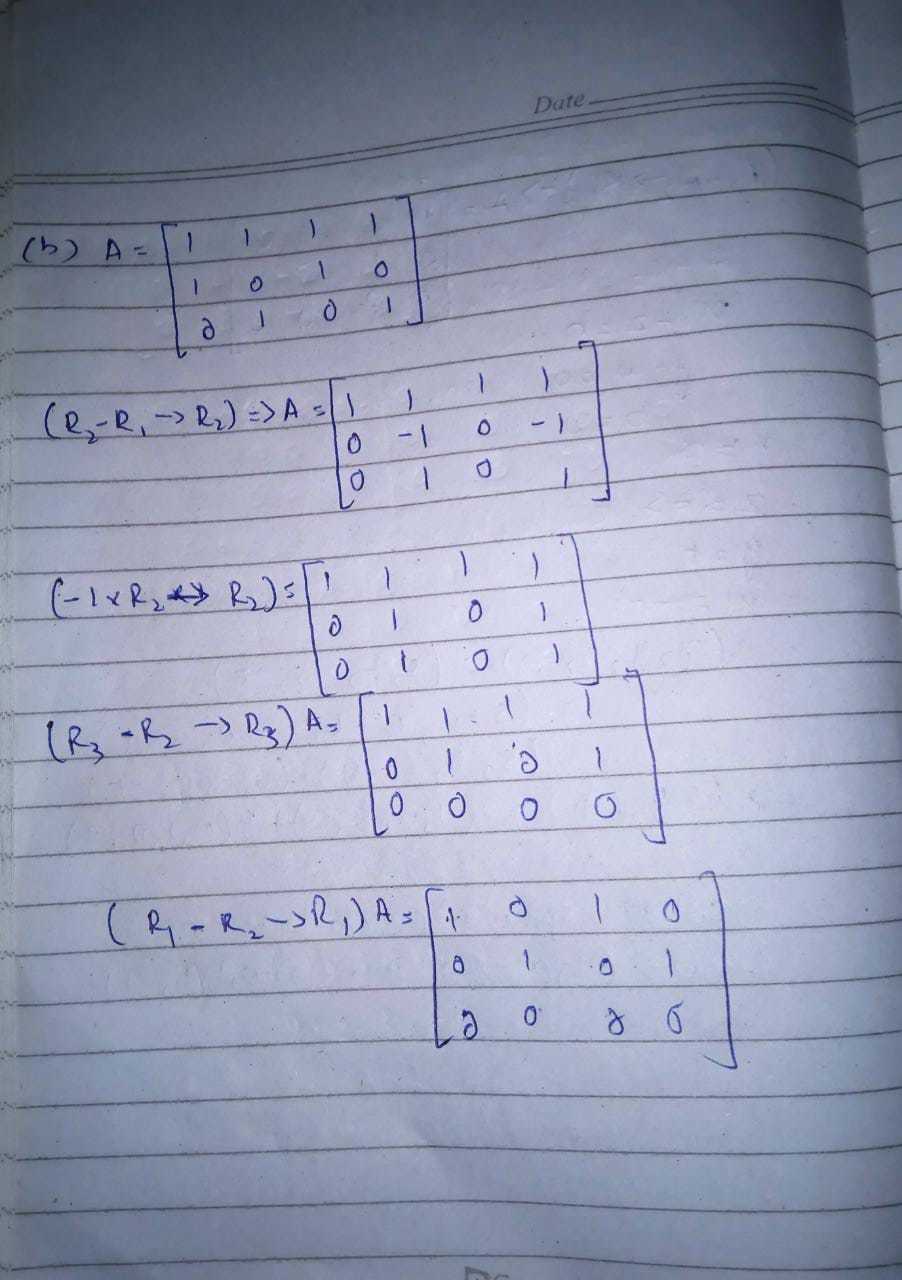 Date
(b) A = [1 1 1 1
1 0 1 0
0 1 0 1]
(R₂-R₁ → R₂) => A = [1 1 1 1
0 -1 0 -1
0 1 0 1]
(-1xR₂ ↔ R₂) = [1 1 1 1
0 1 0 1
0 1 0 1]
(R₃ - R₂ → R₃) A = [1 1 1 1
0 1 0 1
0 0 0 0]
(R₁ - R₂ → R₁) A = [1 0 1 0
0 1 0 1
0 0 0 0]